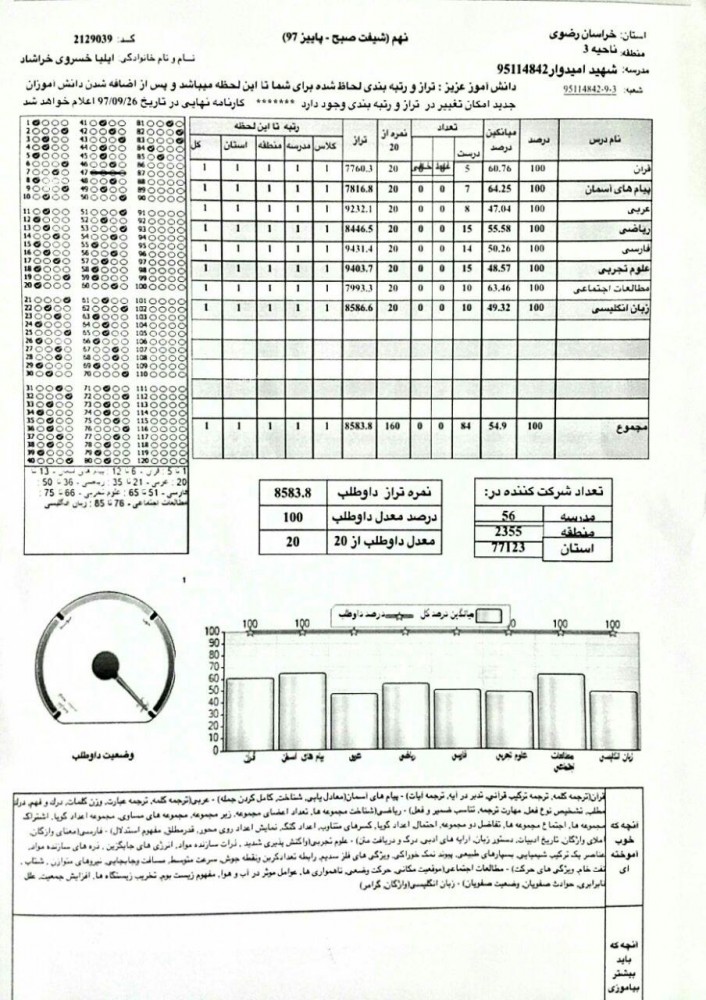 استان: خراسان رضوی
منطقه: ناحیه 3
مدرسه: شهید امیدوار95114842
شعبه: 95114842-9-3
نهم (شیفت صبح - پاییز 97)
کد: 2129039
نام و نام خانوادگی: ایلیا خسروی خراشاد
دانش آموز عزیز : تراز و رتبه بندی لحاظ شده برای شما تا این لحظه میباشد و پس از اضافه شدن دانش آموزان
جدید امکان تغییر در تراز و رتبه بندی وجود دارد ******* کارنامه نهایی در تاریخ 97/09/26 اعلام خواهد شد
نام درس درصد میانگین درصد تعداد درست نمره از 20 تراز رتبه تا این لحظه کلاس مدرسه منطقه استان کل
قران 100 60.76 5 20 7760.3 1 1 1 1 1
پیام های آسمان 100 64.25 7 0 0 20 7816.8 1 1 1 1 1
عربی 100 47.04 8 0 0 20 9232.1 1 1 1 1 1
ریاضی 100 55.58 15 0 0 20 8446.5 1 1 1 1 1
فارسی 100 50.26 14 0 0 20 9431.4 1 1 1 1 1
علوم تجربی 100 48.57 15 0 0 20 9403.7 1 1 1 1 1
مطالعات اجتماعی 100 63.46 10 0 0 20 7993.3 1 1 1 1 1
زبان انگلیسی 100 49.32 10 0 0 20 8586.6 1 1 1 1 1
مجموع 100 54.9 84 0 0 160 8583.8 1 1 1 1 1
1 تا 5 : قران - 6 تا 12 : پیام های آسمان - 13 تا
20 : عربی - 21 تا 35 : ریاضی - 36 تا 50 :
فارسی - 51 تا 65 : علوم تجربی - 66 تا 75 :
مطالعات اجتماعی - 76 تا 85 : زبان انگلیسی
نمره تراز داوطلب 8583.8
درصد معدل داوطلب 100
معدل داوطلب از 20 20
تعداد شرکت کننده در:
مدرسه 56
منطقه 2355
استان 77123
وضعیت داوطلب
میانگین درصد کل درصد داوطلب
100
90
80
70
60
50
40
30
20
10
0
قران پیام های آسمان عربی ریاضی فارسی علوم تجربی مطالعات اجتماعی زبان انگلیسی
آنچه که
خوب
آموخته
ای
قران(ترجمه کلمه, ترجمه ترکیب قرانی, تدبر در آیه, ترجمه آیات) - پیام های آسمان(معادل یابی, شناخت, کامل کردن جمله) - عربی(ترجمه کلمه, ترجمه عبارت, وزن کلمات, درک و فهم, درک
مطلب, تشخیص نوع فعل, مهارت ترجمه, تناسب ضمیر و فعل) - ریاضی(شناخت مجموعه ها, تعداد اعضای مجموعه, زیر مجموعه, مجموعه های مساوی, مجموعه اعداد گویا, اشتراک
مجموعه ها, اجتماع مجموعه ها, تفاضل دو مجموعه, احتمال, اعداد گویا, کسرهای متناوب, اعداد گنگ, نمایش اعداد روی محور, قدرمطلق, مفهوم استدلال) - فارسی(معنای واژگان,
املای واژگان, تاریخ ادبیات, دستور زبان, آرایه های ادبی, درک و دریافت متن) - علوم تجربی(واکنش پذیری
عناصر, یک ترکیب شیمیایی, بسپارهای طبیعی, پیوند نمک خوراکی, ویژگی های فلز سدیم, رابطه تعدادکربن ونقطه جوش, سرعت متوسط, مسافت وجابجایی, نیروهای متوازن, شتاب,
نفت خام, ویژگی های حرکت) - مطالعات اجتماعی(موقعیت مکانی, حرکت وضعی, ناهمواری ها, عوامل موثر در آب و هوا, مفهوم زیست بوم, تخریب زیستگاه ها, افزایش جمعیت, علل
نابرابری, حوادث صفویان, وضعیت صفویان) - زبان انگلیسی(واژگان, گرامر)
آنچه که
باید
بیشتر
بیاموزی